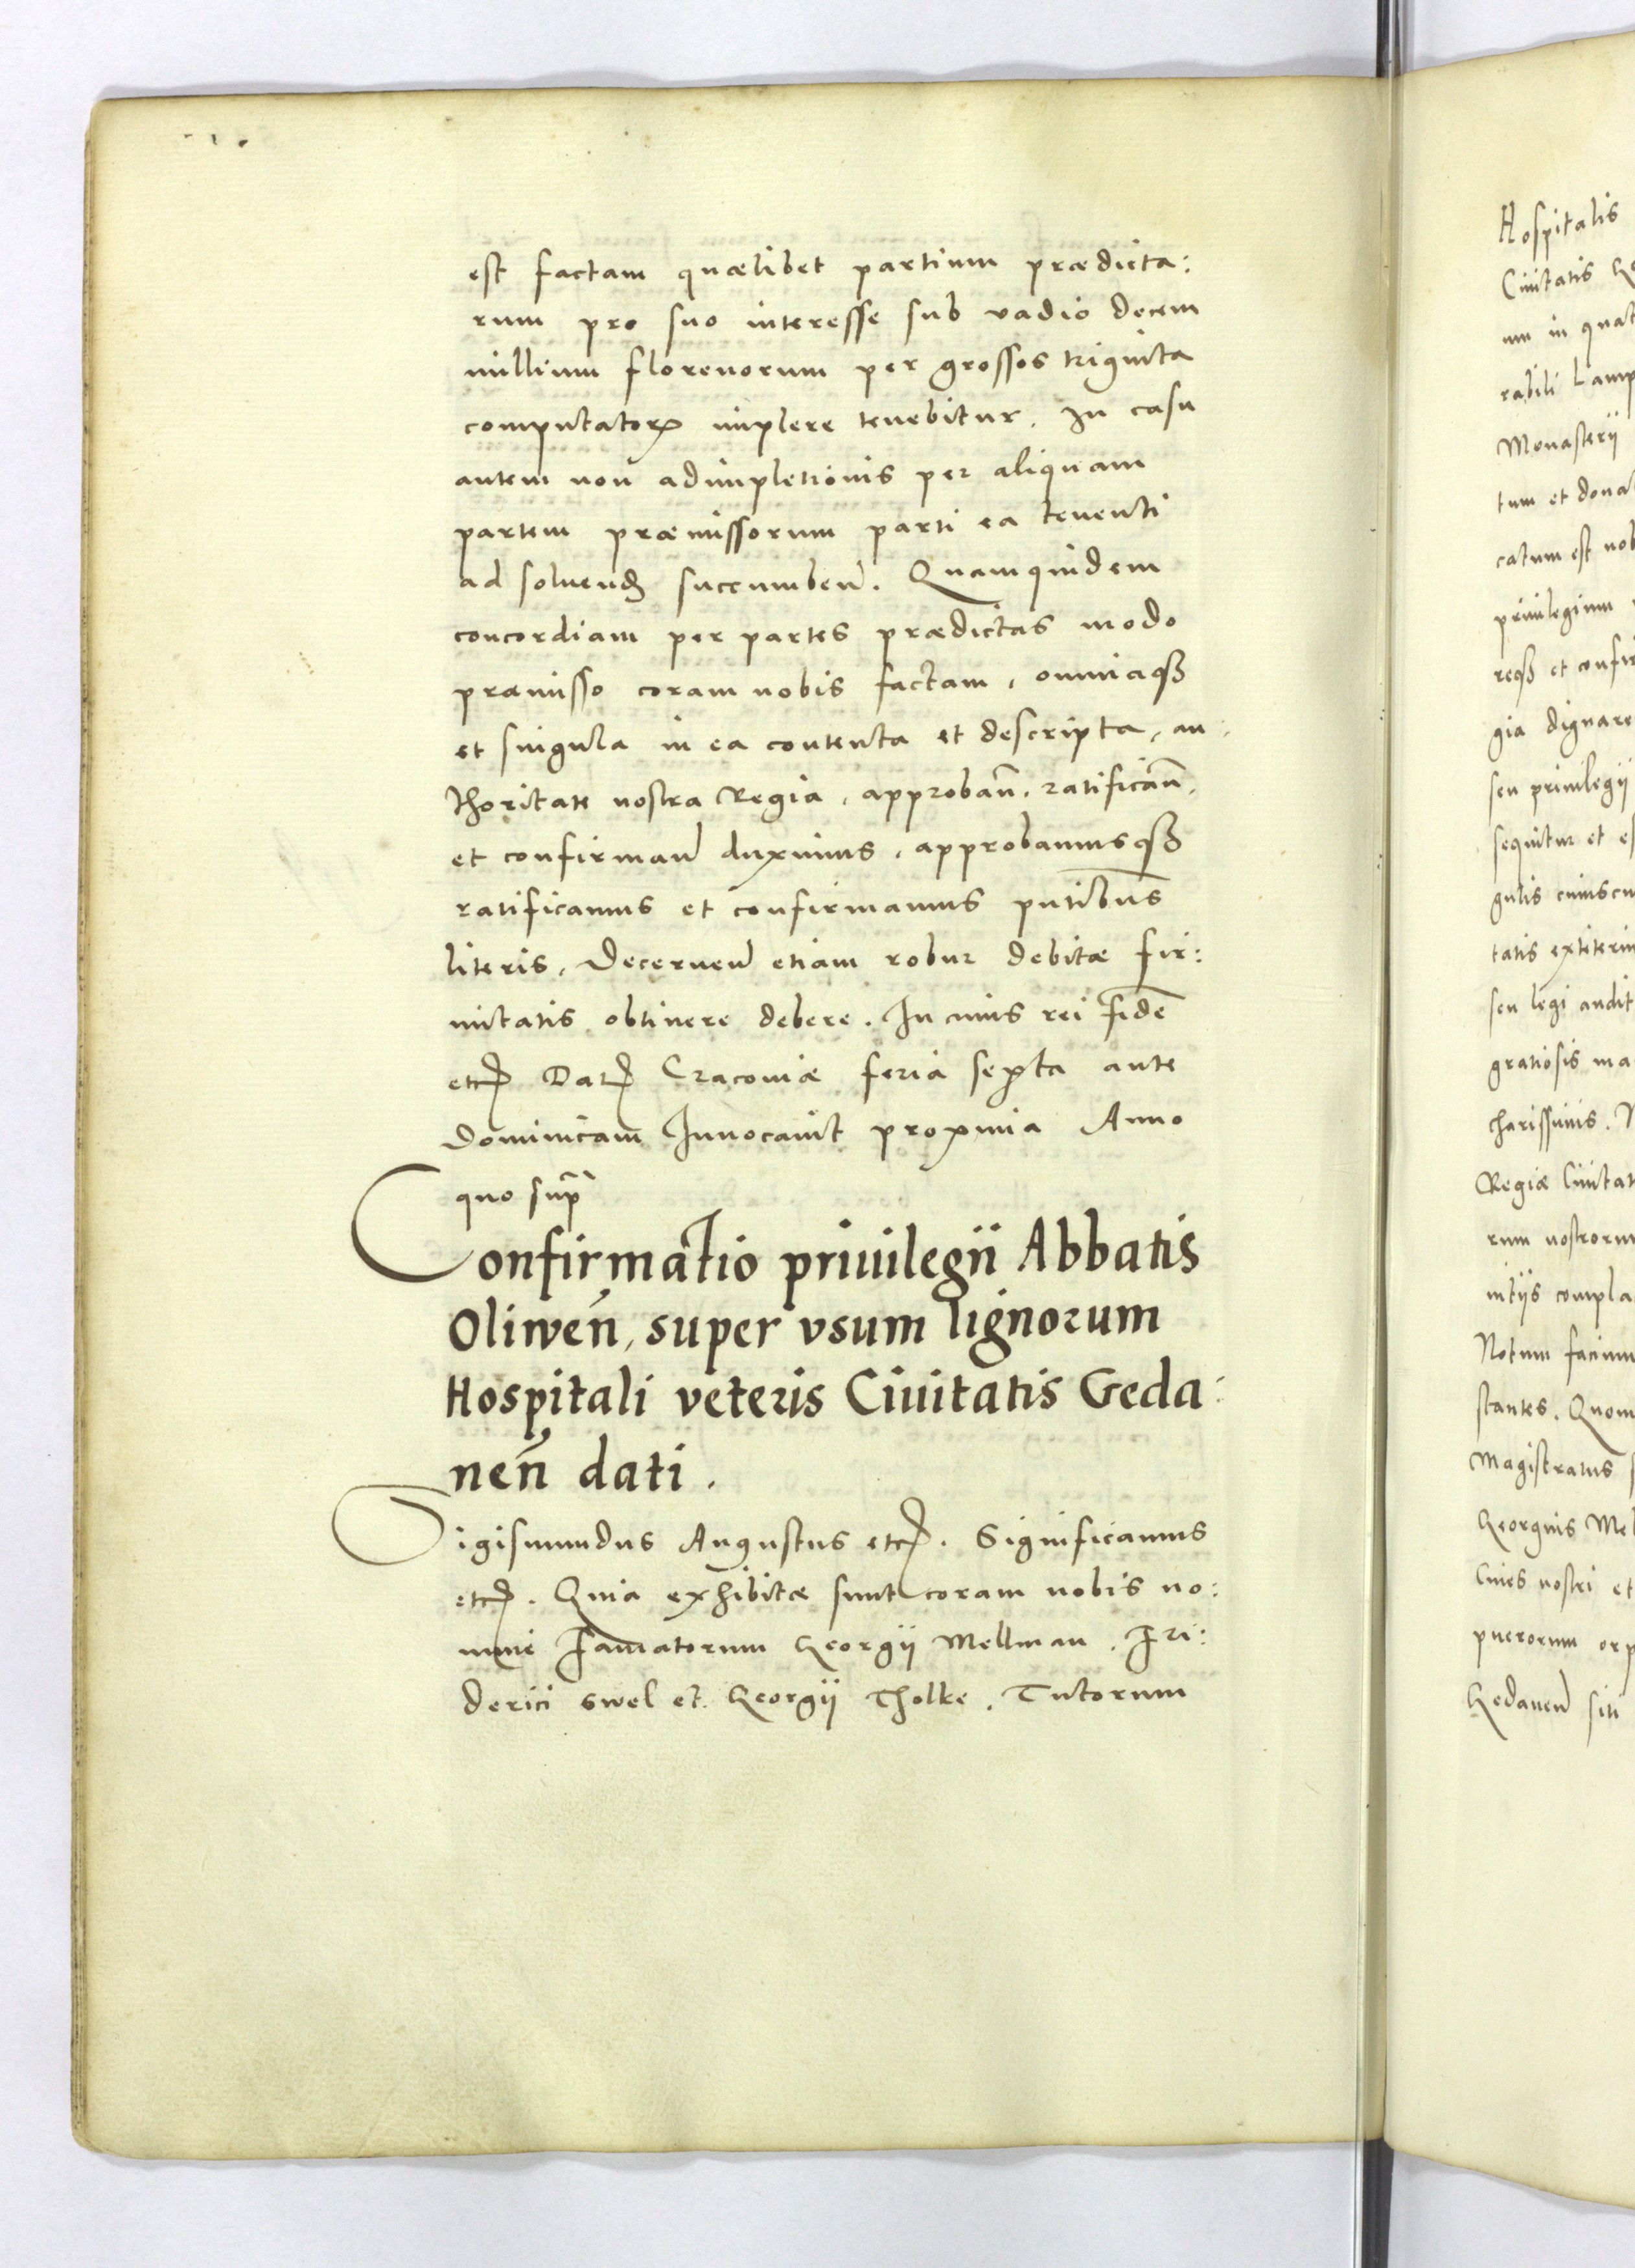 est factam quælibet partium prædicta:
rum pro suo interesse sub vadio decem
millium florenorum per grossos triginta
computatorꝝ implere tenebitur. In casu
autem non adimpletionis per aliquam
partem præmissorum parti ea tenenti
ad soluend succumben̄. Quamquidem
concordiam per partes prædictas modo
præmisso coram nobis factam, omniaqꝫ
et singula in ea contenta et descripta, au:
thoritate nostra Regia, approban̄, ratifican̄,
et confirman̄ duximus, approbamusqꝫ
ratificamus et confirmamus pn̄tibus
literis, Decernen̄ etiam robur debitæ fir:
mitatis obtinere debere. In cuius rei fidē
etc. Dat. Cracoviæ feria sexta ante
Dominicam Inuocauit proxima Anno
quo sup̄
Confirmatio priuilegii Abbatis
Oliwen̄, super vsum lignorum
Hospitali veteris Ciuitatis Geda:
nen̄ dati.
Sigismundus Augustus etc. Significamus
etc. Quia exhibitæ sunt coram nobis no:
mine Famatorum Georgij Mellman, Fri:
derici Swel et Georgij Tholke, Tutorum
Hospitalis
Ciuitatis Ge
um in quat
rabili Lamp
Monasterij
tum et dona
catum est nob
priuilegium
reqꝫ et confir
gia dignare
seu priuilegij
sequitur et es
gulis cuiuscu
tatis extiterin
seu legi audit
gratiosis ma
charissimis. N
Regiæ Ciuitat
rum nostroru
nitijs compla
Notum facimu
stantes. Quom
Magistratus s
Georgius Mel
Ciues nostri et
puerorum orp
Gedanen̄ siti